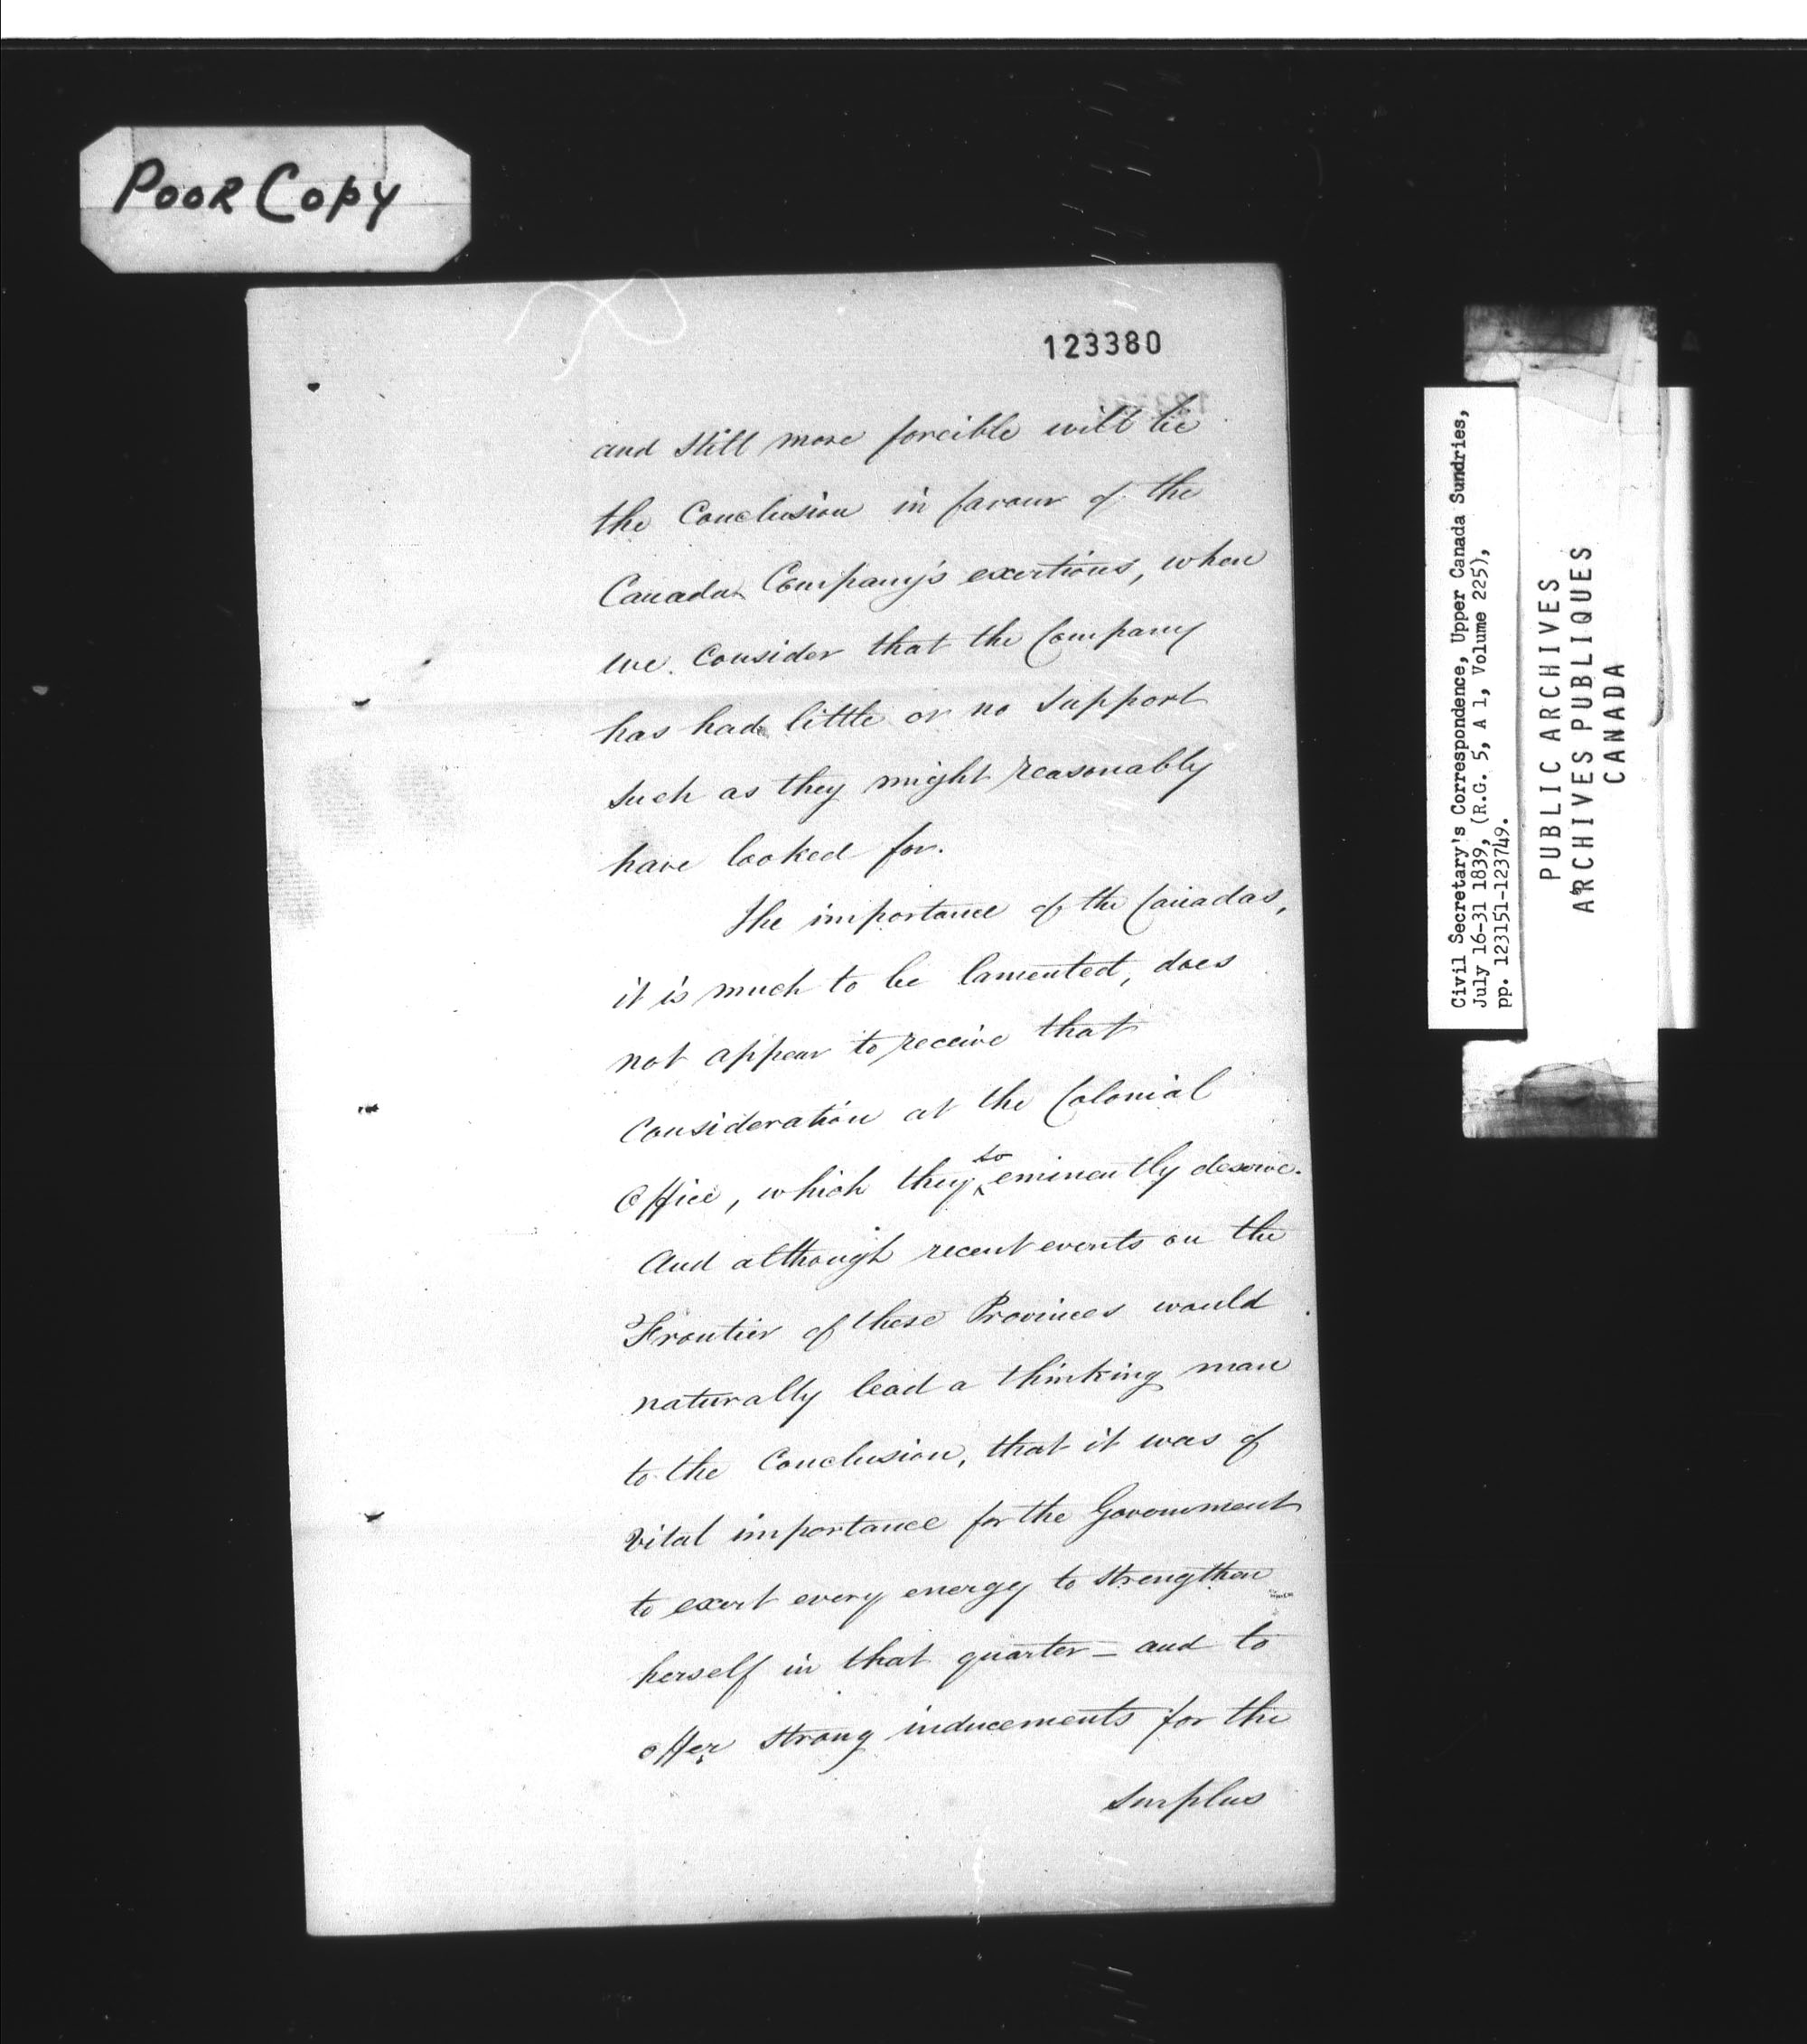 Poor Copy
123380
and still more forcible will be
the Conclusion in favour of the
Canada Company's exertions, when
we Consider that the Company
has had little or no support
such as they might reasonably
have looked for.
The importance of the Canadas,
it is much to be lamented, does
not appear to receive that
Consideration at the Colonial
so
Office, which they ^ eminently deserve.
And although recent events on the
Frontier of these Provinces would
naturally lead a thinking man
to the Conclusion, that it was of
vital importance for the Government
to exert every energy to strengthen
herself in that quarter — and to
offer strong inducements for the
surplus
Civil Secretary's Correspondence, Upper Canada Sundries,
July 16-31 1839, (R.G. 5, A 1, Volume 225),
pp. 123151-123749.
PUBLIC ARCHIVES
ARCHIVES PUBLIQUES
CANADA